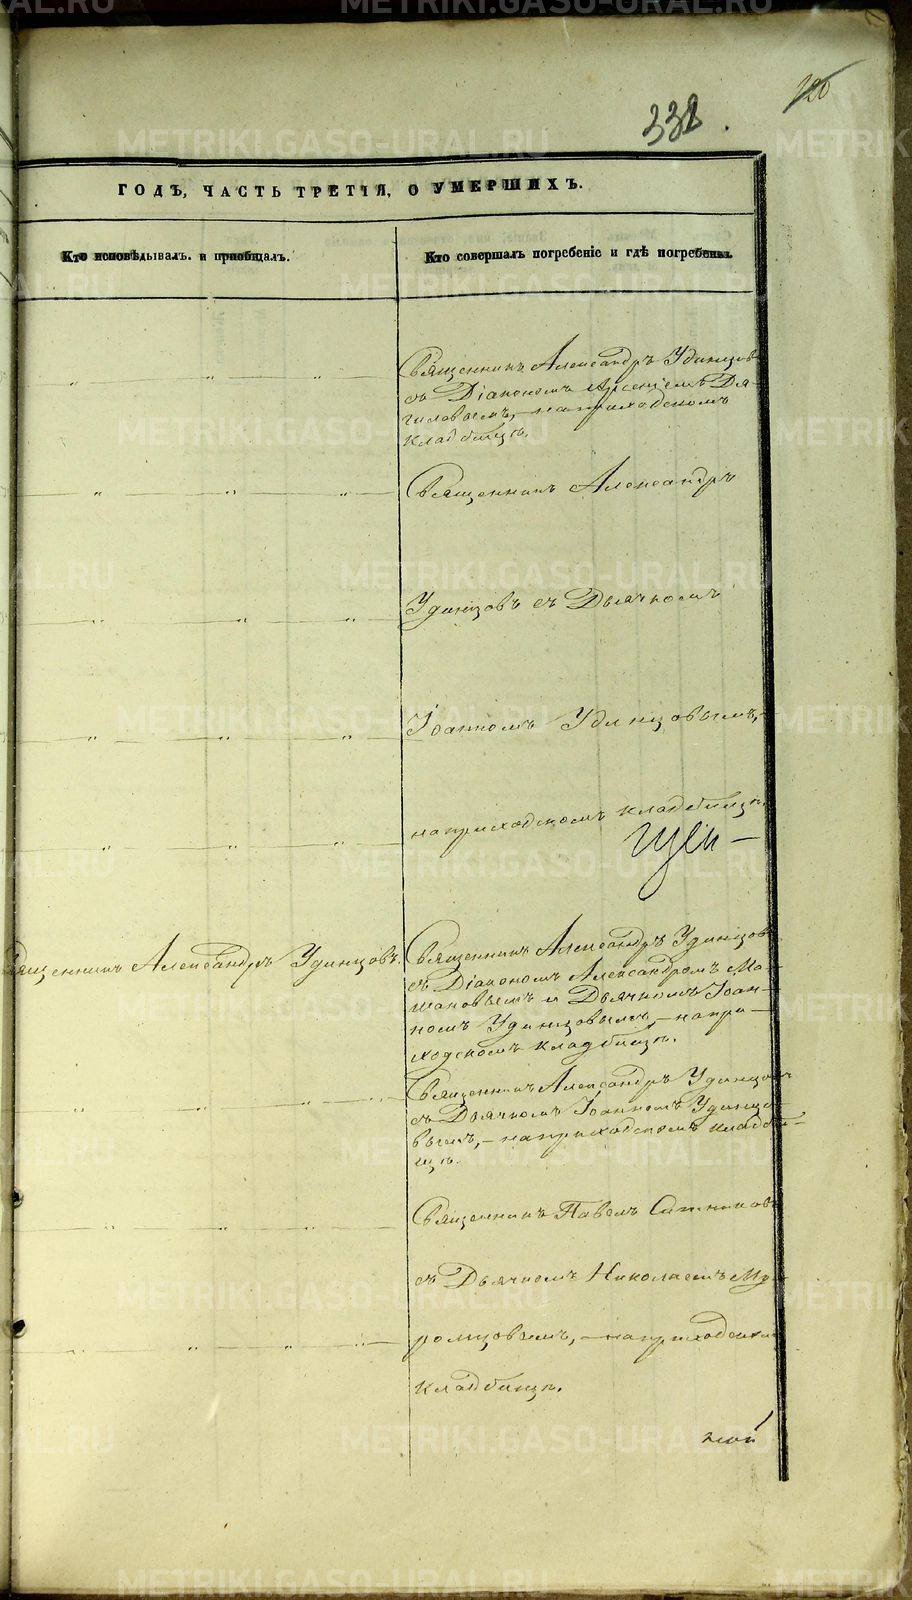 120
338.
ГОДЪ, ЧАСТЬ ТРЕТІЯ, О УМЕРШИХЪ.
Кто исповѣдывалъ и пріобщалъ.
Кто совершалъ погребеніе и гдѣ погребены.
Священникъ Александръ Удинцовъ
съ Діакономъ Арсеніемъ Дя-
гилевымъ, - на приходскомъ
кладбищѣ.
Священникъ Александръ
Удинцовъ съ Дьячкомъ
Іоанномъ Удинцовымъ, -
на приходскомъ кладбищѣ.
Священникъ Александръ Удинцовъ.
Священникъ Александръ Удинцовъ
съ Діакономъ Александромъ Ма-
шановымъ и Дьячкомъ Іоан-
номъ Удинцовымъ, - на при-
ходскомъ кладбищѣ.
Священникъ Александръ Удинцовъ
съ Дьячкомъ Іоанномъ Удинцо-
вымъ, - на приходскомъ кладби-
щѣ.
Священникъ Павелъ Ситниковъ
съ Дьячкомъ Николаемъ Му-
ромцовымъ, - на приходскомъ
кладбищѣ.
METRIKI.GASO-URAL.RU